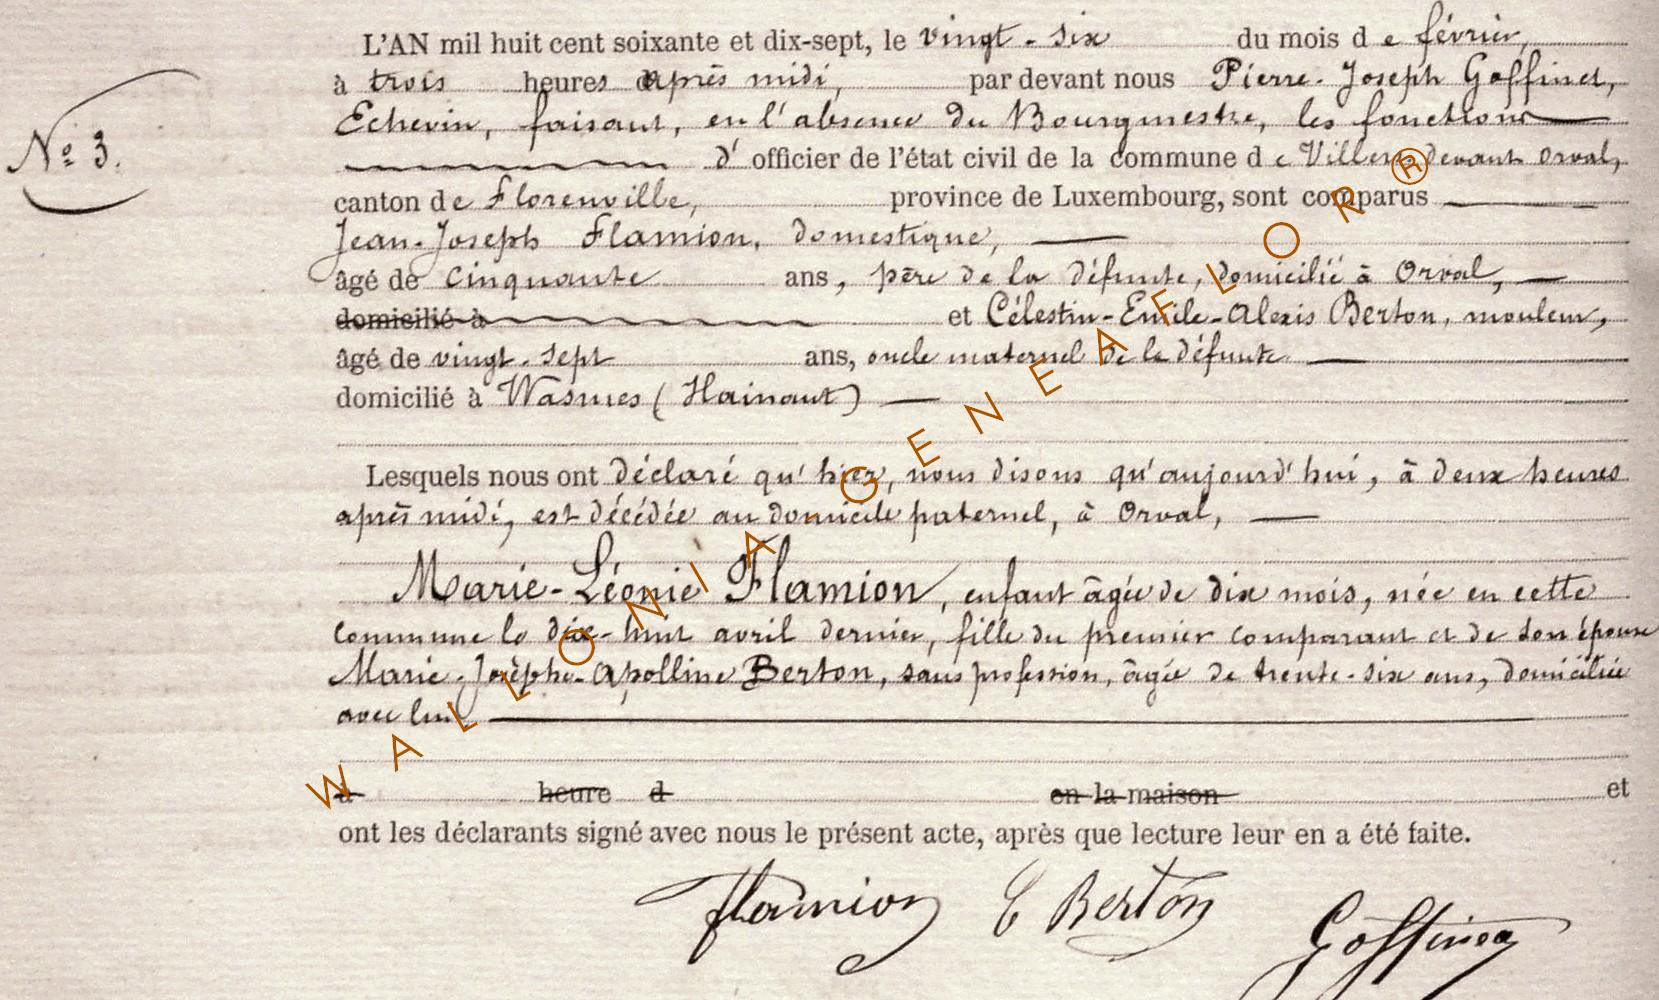 L'AN mil huit cent soixante et dix-sept, le vingt-six du mois de février,
à trois heures après midi, par devant nous Pierre-Joseph Goffinet,
Echevin, faisant, en l'absence du Bourgmestre, les fonctions
N° 3.
d'officier de l'état civil de la commune de Villers devant Orval,
canton de Florenville, province de Luxembourg, sont comparus
Jean-Joseph Flamion, domestique,
âgé de cinquante ans, père de la défunte, domicilié à Orval,
domicilié à et Célestin-Emile-Alexis Berton, mouleur,
âgé de vingt-sept ans, oncle maternel de la défunte
domicilié à Wasmes (Hainaut)
Lesquels nous ont déclaré qu'hier, nous disons qu'aujourd'hui, à deux heures
après midi, est décédée au domicile paternel, à Orval,
Marie-Léonie Flamion, enfant âgée de dix mois, née en cette
commune le dix-huit avril dernier, fille du premier comparant et de son épouse
Marie-Josèphe-Apolline Berton, sans profession, âgée de trente-six ans, domiciliée
avec lui,
à heure d en la maison et
ont les déclarants signé avec nous le présent acte, après que lecture leur en a été faite.
Flamion E Berton Goffinet
WALLONIA GENEAFLOR ®